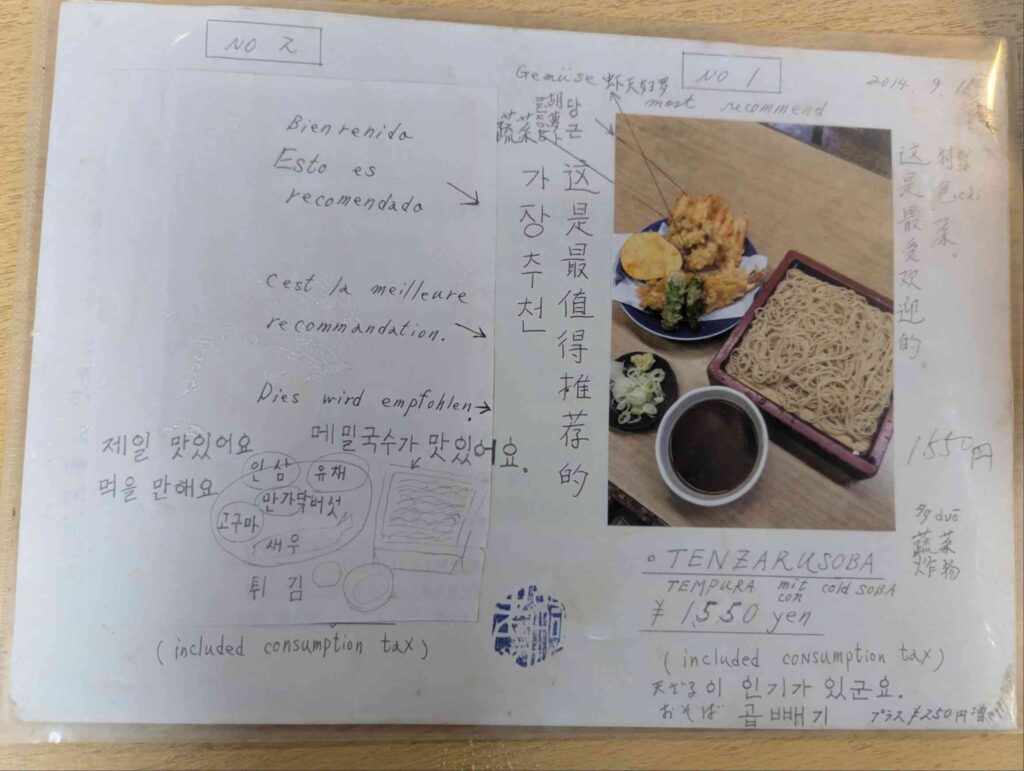 NO 2
Bienvenido
Esto es
recomendado
c'est la meilleure
recommandation.
Dies wird empfohlen.
제일 맛있어요
먹을 만해요
메밀국수가 맛있어요.
인삼
유채
만가닥버섯
고구마
새우
튀김
(included consumption tax)
NO 1
2014. 9.
Gemüse 虾天妇罗
most recommend
당근
蔬菜
가장 추천
这是最值得推荐的
这是最受欢迎的
特
色
菜。
1550円
多 duō
蔬菜
炸物
TENZARUSOBA
TEMPURA mit con cold SOBA
¥ 1,550 yen
(included consumption tax)
天ざる이 인기가 있군요.
おそば 곱빼기 プラス¥250円増